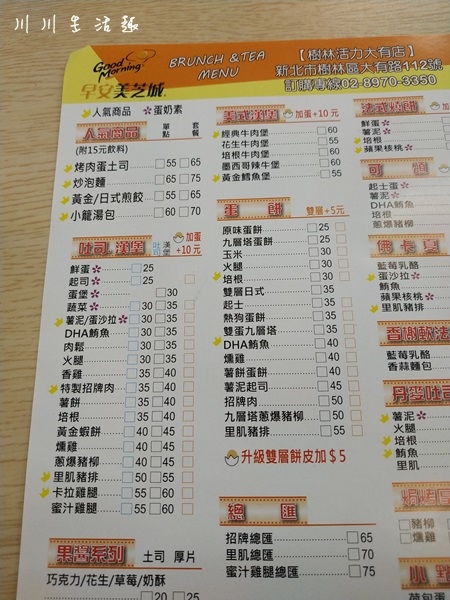 川川生活趣
Good Morning
早安美芝城
BRUNCH & TEA MENU
【樹林活力大有店】
新北市樹林區大有路112號
訂購專線02-8970-3350
人氣商品 蛋奶素
人氣商品 單點 套餐
(附15元飲料)
烤肉蛋土司 55 65
炒泡麵 65 75
黃金/日式煎餃 55 65
小籠湯包 60 70
吐司.漢堡 吐司 漢堡 加蛋+10元
鮮蛋 25
起司 25
蛋堡 30
蔬菜 30 35
薯泥/蛋沙拉 30 35
DHA鮪魚 30 35
肉鬆 30 35
火腿 30 35
香雞 35 40
特製招牌肉 35 40
薯餅 35 40
培根 35 40
黃金蝦餅 40 45
燻雞 40 45
蔥爆豬柳 40 45
里肌豬排 50 55
卡拉雞腿 55 60
蜜汁雞腿 55 60
果醬系列 土司 厚片
巧克力/花生/草莓/奶酥
20 25
美式漢堡 加蛋+10元
經典牛肉堡 60
花生牛肉堡 55
培根牛肉堡 60
墨西哥辣牛堡 60
黃金鱈魚堡 55
蛋餅 雙層+5元
原味蛋餅 25
九層塔蛋餅 25
玉米 30
火腿 30
培根 30
雙層日式 35
起士 35
熱狗蛋餅 35
雙蛋九層塔 35
DHA鮪魚 40
燻雞 40
薯餅蛋餅 40
薯泥起司 45
招牌肉 50
九層塔蔥爆豬柳 50
里肌豬排 55
升級雙層餅皮加$5
總匯
招牌總匯 65
里肌總匯 70
蜜汁雞腿總匯 75
鮮蛋
薯泥
火腿
蘋果核桃
可頌
起士蛋
薯泥
DHA鮪魚
培根
蔥爆豬柳
佛卡夏
藍莓乳酪
蛋沙拉
鮪魚
蘋果核桃
里肌豬排
香榭軟法
藍莓乳酪
香蒜麵包
丹麥吐司
薯泥
火腿
培根
鮪魚
里肌
豬柳
燻雞
小點
荷包蛋